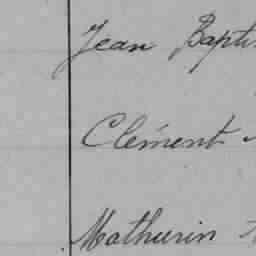 Jean Bapti
Clément
Mathurin